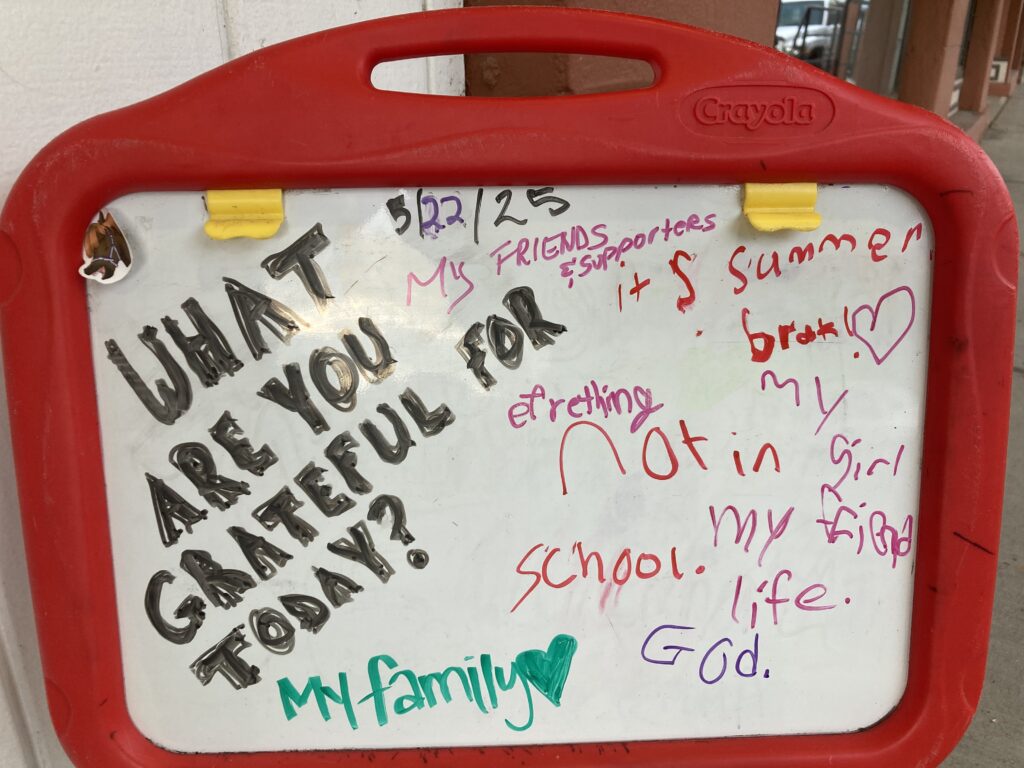 Crayola
5/22/25
WHAT
ARE YOU FOR
GRATEFUL
TODAY?
My FRIENDS
& SUPPORTERS
it s summer
brak!
efrething
not in
school.
my
girl
friend
my
life.
God.
My family